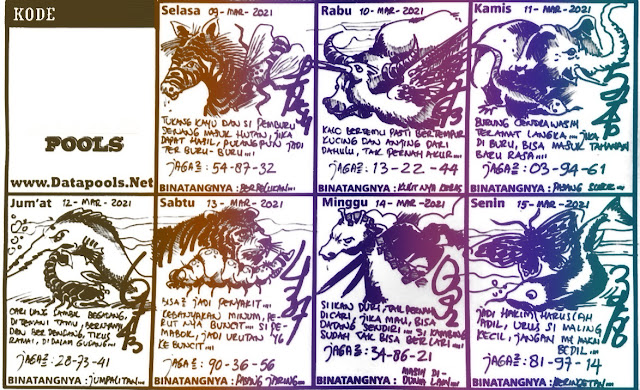 KODE
POOLS
www.Datapools.Net
Selasa 09-MAR-2021
TUKANG KAYU DAN SI PEMBURU
SENANG MASUK HUTAN, JIKA
DAPAT HASIL, PULANG PUN JADI
TER BURU-BURU...!
JAGA2: 54-87-32
BINATANGNYA:
Rabu 10-MAR-2021
KALO BERTEMU PASTI BERTEMPUR
KUCING DAN ANJING DARI
DAHULU, TAK PERNAH AKUR...
JAGA2: 13-22-44
BINATANGNYA: KULIT NYA KERAS
Kamis 11-MAR-2021
BURUNG CENDRAWASIH
TERAMAT LANGKA... JIKA
DI BURU, BISA MASUK TAHANAN
BARU RASA...
JAGA2: 03-94-61
BINATANGNYA: PASANG
Jum'at 12-MAR-2021
CARI UANG SAMBIL BERGADANG,
DI TEMANI TAMU,
DAN TIKUS
RAMAI, DI DALAM GUDANG
JAGA2: 28-73-41
BINATANGNYA: JUMPALITAN...
Sabtu 13-MAR-2021
BISA JADI PENYAKIT...
KEBANYAKAN MINUM, PE-
RUT NYA BUNCIT... SI PE-
MABOK, JADI URUTAN 46
KE BUNCIT...
JAGA2: 90-36-56
BINATANGNYA: PASANG JARING...
Minggu 14-MAR-2021
SI IKAN DURI, TAK PERNAH
DICARI, JIKA MAU, BISA
DATANG SENDIRI... SI KAMBING
SUDAH TAK BISA BERLARI...
JAGA2: 34-86-21
BINATANGNYA: MASIH DI-
DUNIA LAIN...
Senin 15-MAR-2021
JADI HAKIM HARUSLAH
ADIL, URUS SI MALING
KECIL, JANGAN
BEDIL...
JAGA2: 81-97-14
BINATANGNYA: